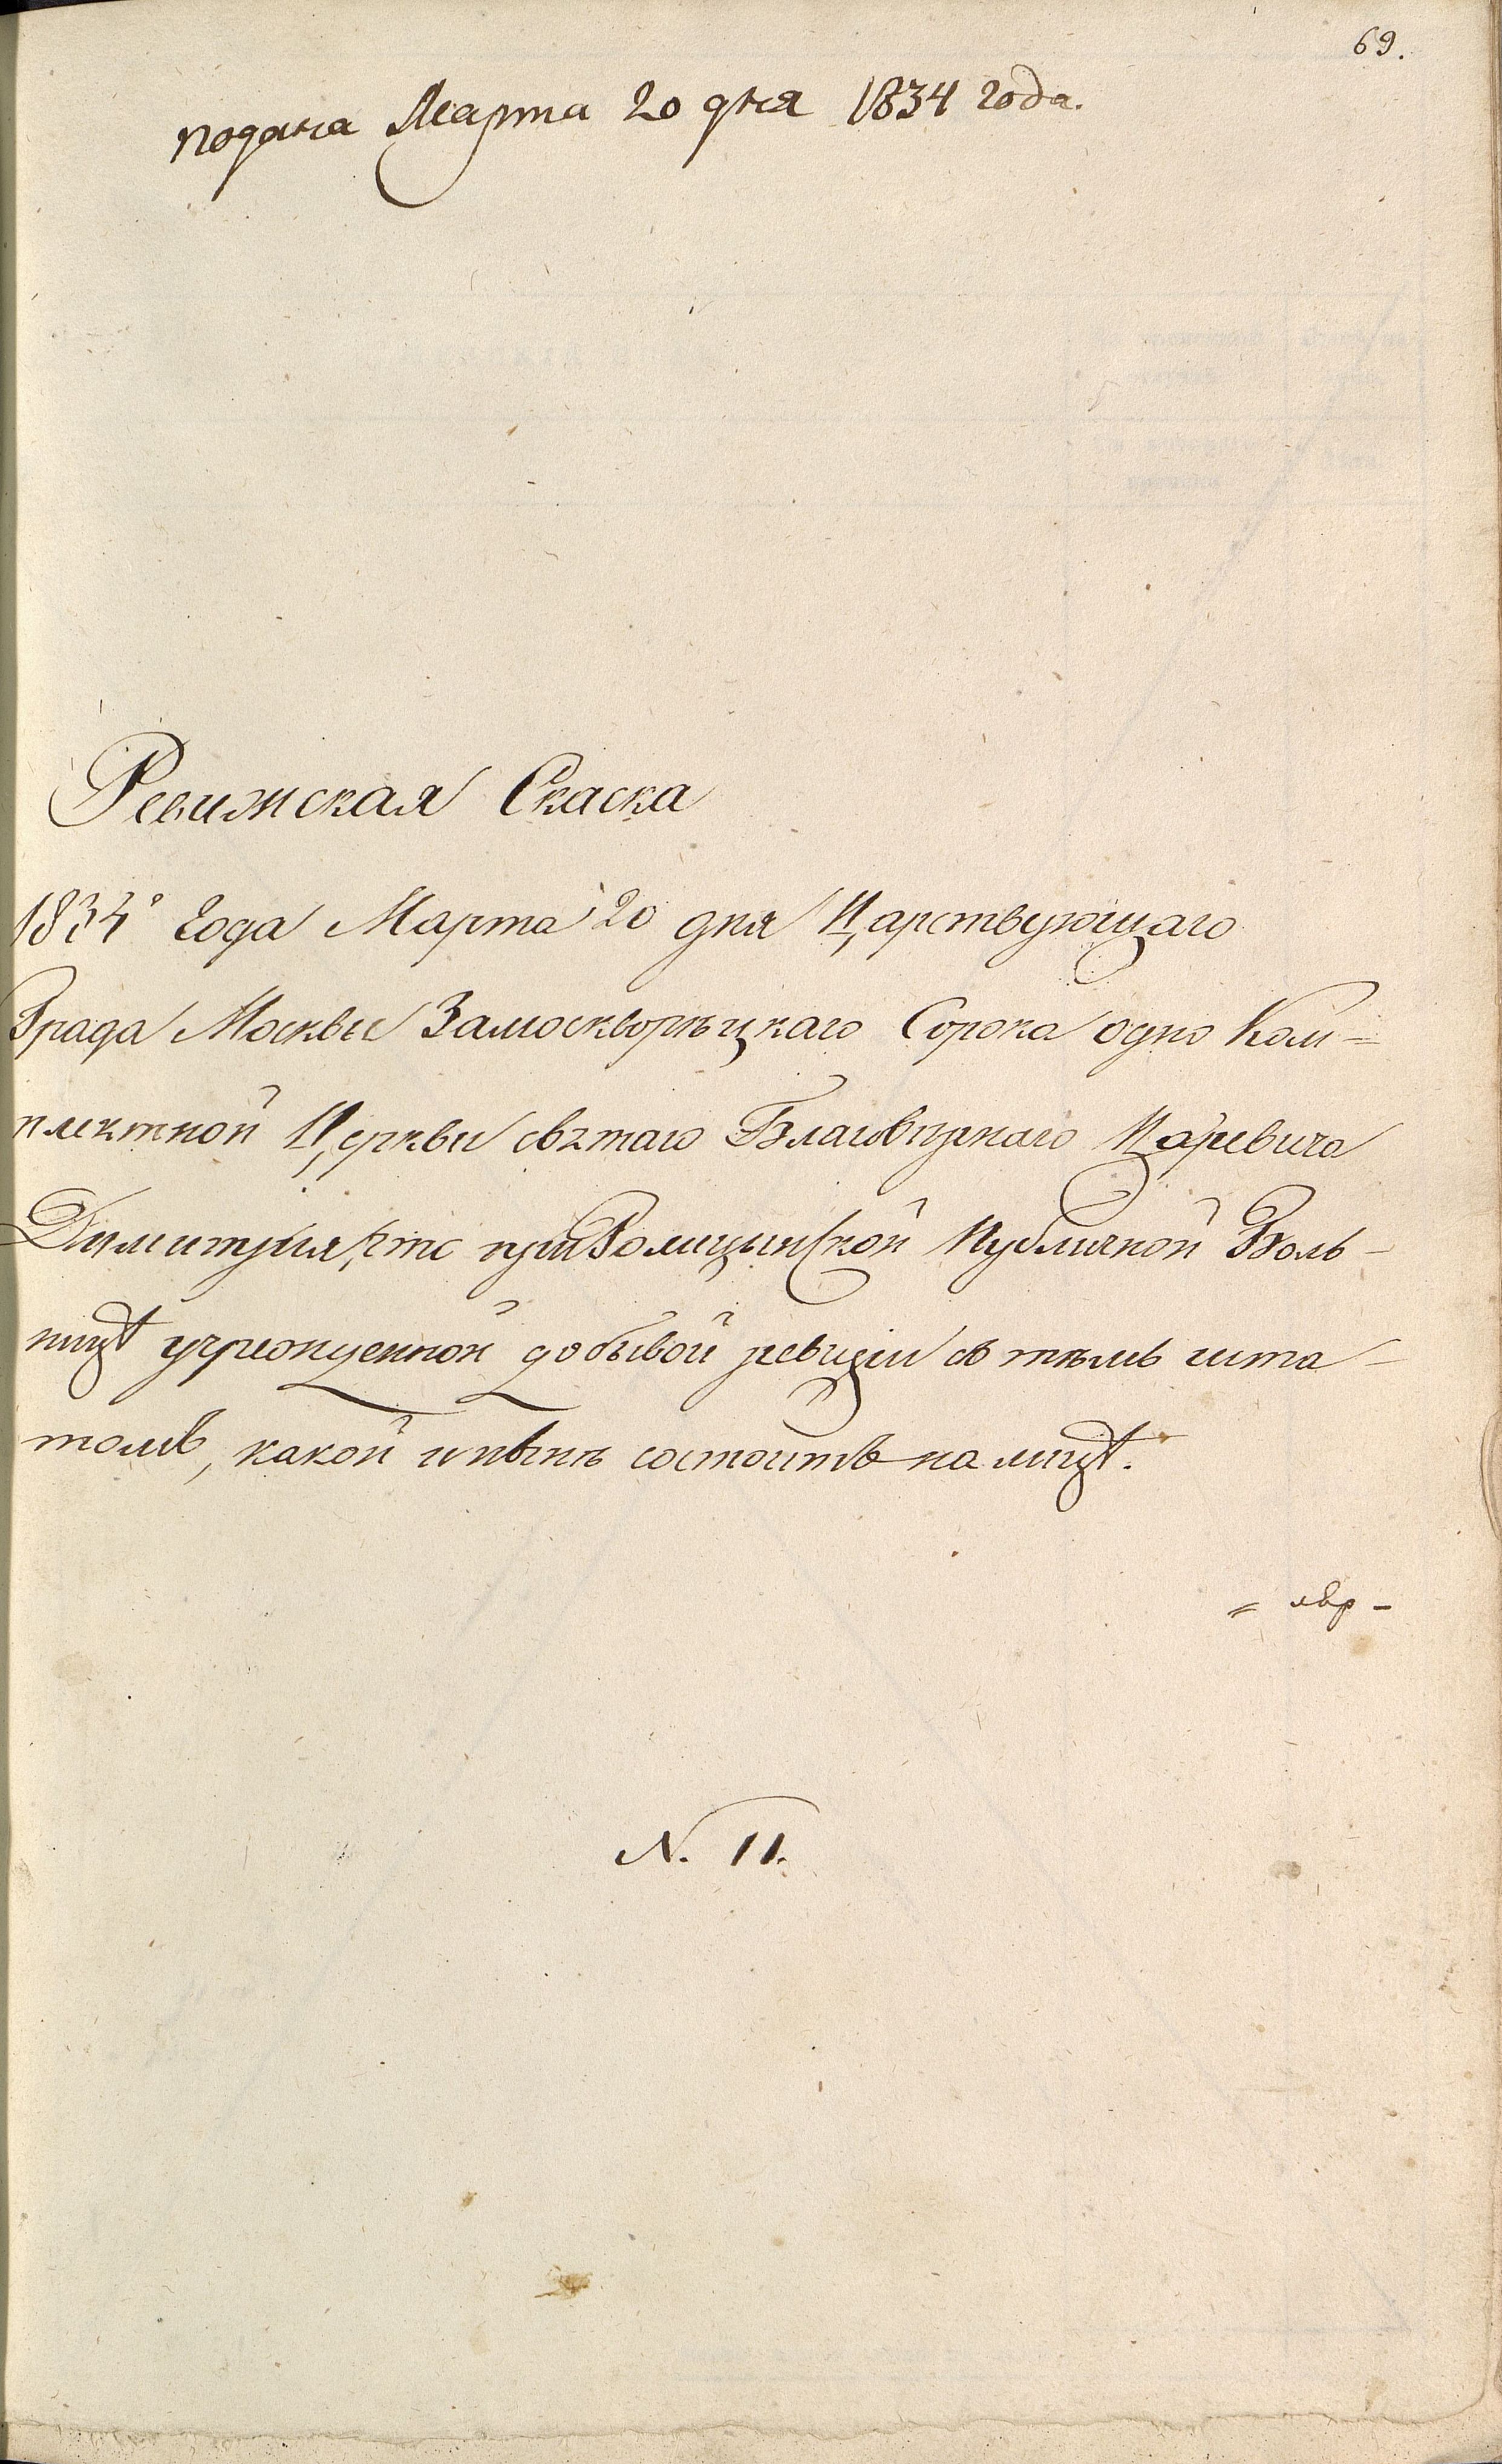 69.
подана Марта 20 дня 1834 года.
Ревижская Скаска
1834° года Марта 20 дня Царствующаго
Града Москвы Замоскворѣцкаго Сорока одно Ком=
плектной Церкви святаго Благовѣрнаго Царевича
Димитрия, что при Голицынской Публичной Боль-
ницѣ учрежденной до бывой ревизіи съ тѣмъ шта-
томъ, какой и нынѣ состоитъ на лицѣ.
N. 11.